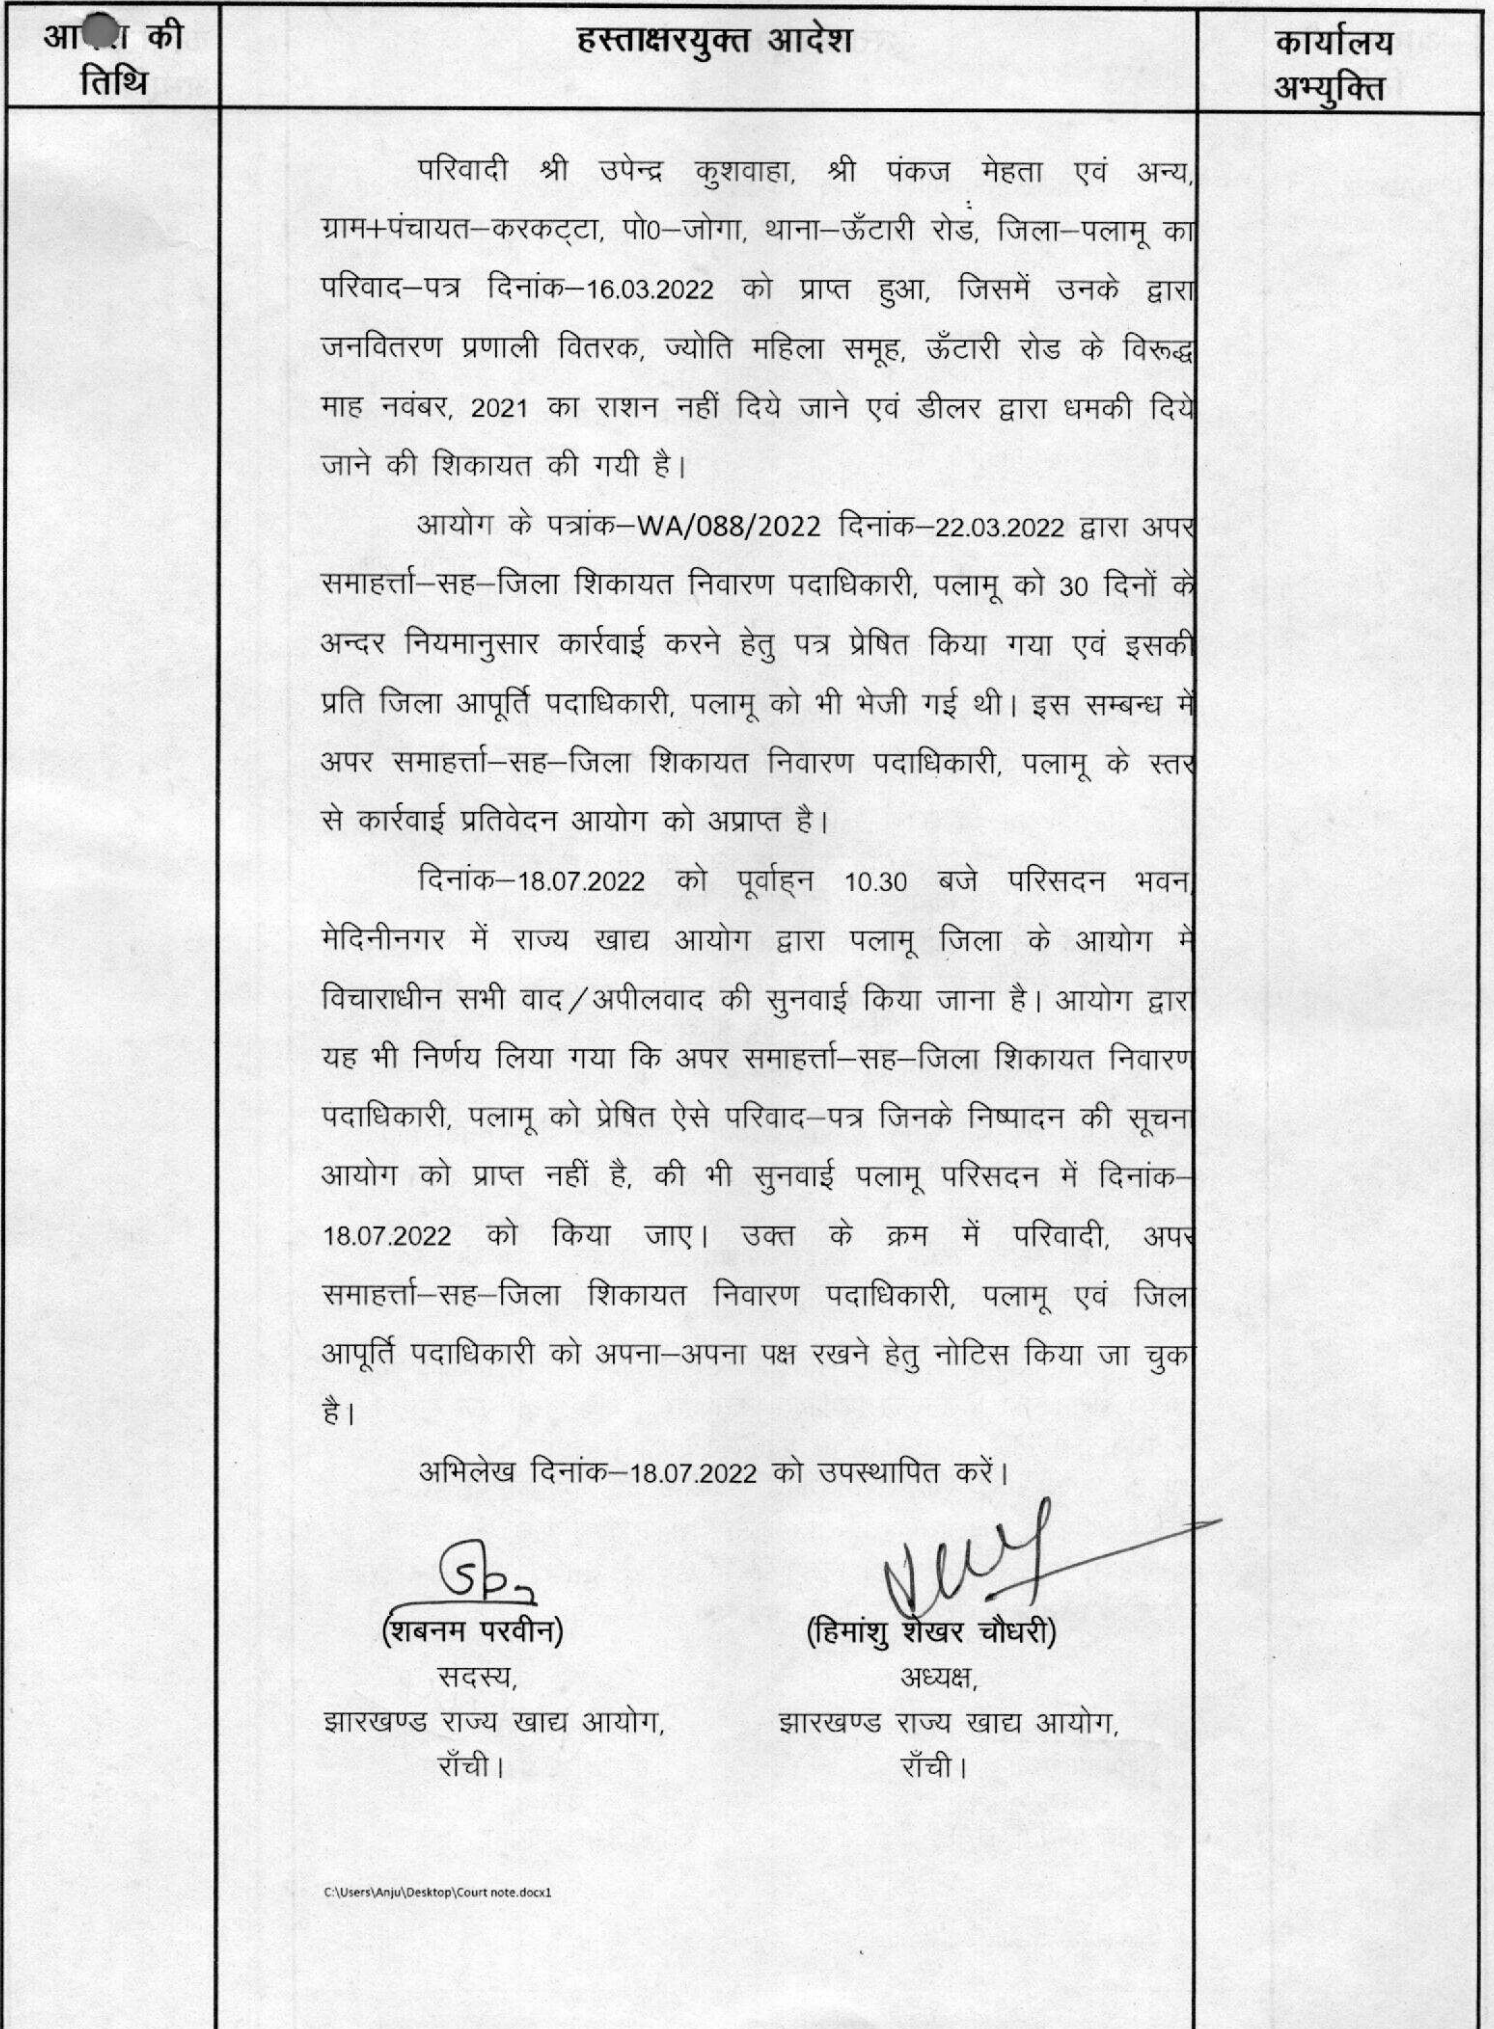 आदेश की तिथि
हस्ताक्षरयुक्त आदेश
कार्यालय अभ्युक्ति
परिवादी श्री उपेन्द्र कुशवाहा, श्री पंकज मेहता एवं अन्य,
ग्राम+पंचायत–करकट्टा, पो0–जोगा, थाना–ऊँटारी रोड, जिला–पलामू का
परिवाद–पत्र दिनांक–16.03.2022 को प्राप्त हुआ, जिसमें उनके द्वारा
जनवितरण प्रणाली वितरक, ज्योति महिला समूह, ऊँटारी रोड के विरूद्ध
माह नवंबर, 2021 का राशन नहीं दिये जाने एवं डीलर द्वारा धमकी दिये
जाने की शिकायत की गयी है।
आयोग के पत्रांक–WA/088/2022 दिनांक–22.03.2022 द्वारा अपर
समाहर्त्ता–सह–जिला शिकायत निवारण पदाधिकारी, पलामू को 30 दिनों के
अन्दर नियमानुसार कार्रवाई करने हेतु पत्र प्रेषित किया गया एवं इसकी
प्रति जिला आपूर्ति पदाधिकारी, पलामू को भी भेजी गई थी। इस सम्बन्ध में
अपर समाहर्त्ता–सह–जिला शिकायत निवारण पदाधिकारी, पलामू के स्तर
से कार्रवाई प्रतिवेदन आयोग को अप्राप्त है।
दिनांक–18.07.2022 को पूर्वाह्न 10.30 बजे परिसदन भवन,
मेदिनीनगर में राज्य खाद्य आयोग द्वारा पलामू जिला के आयोग में
विचाराधीन सभी वाद/अपीलवाद की सुनवाई किया जाना है। आयोग द्वारा
यह भी निर्णय लिया गया कि अपर समाहर्त्ता–सह–जिला शिकायत निवारण
पदाधिकारी, पलामू को प्रेषित ऐसे परिवाद–पत्र जिनके निष्पादन की सूचना
आयोग को प्राप्त नहीं है, की भी सुनवाई पलामू परिसदन में दिनांक–
18.07.2022 को किया जाए। उक्त के क्रम में परिवादी, अपर
समाहर्त्ता–सह–जिला शिकायत निवारण पदाधिकारी, पलामू एवं जिला
आपूर्ति पदाधिकारी को अपना–अपना पक्ष रखने हेतु नोटिस किया जा चुका
है।
अभिलेख दिनांक–18.07.2022 को उपस्थापित करें।
(शबनम परवीन)
सदस्य,
झारखण्ड राज्य खाद्य आयोग,
राँची।
(हिमांशु शेखर चौधरी)
अध्यक्ष,
झारखण्ड राज्य खाद्य आयोग,
राँची।
C:\Users\Anju\Desktop\Court note.docx1